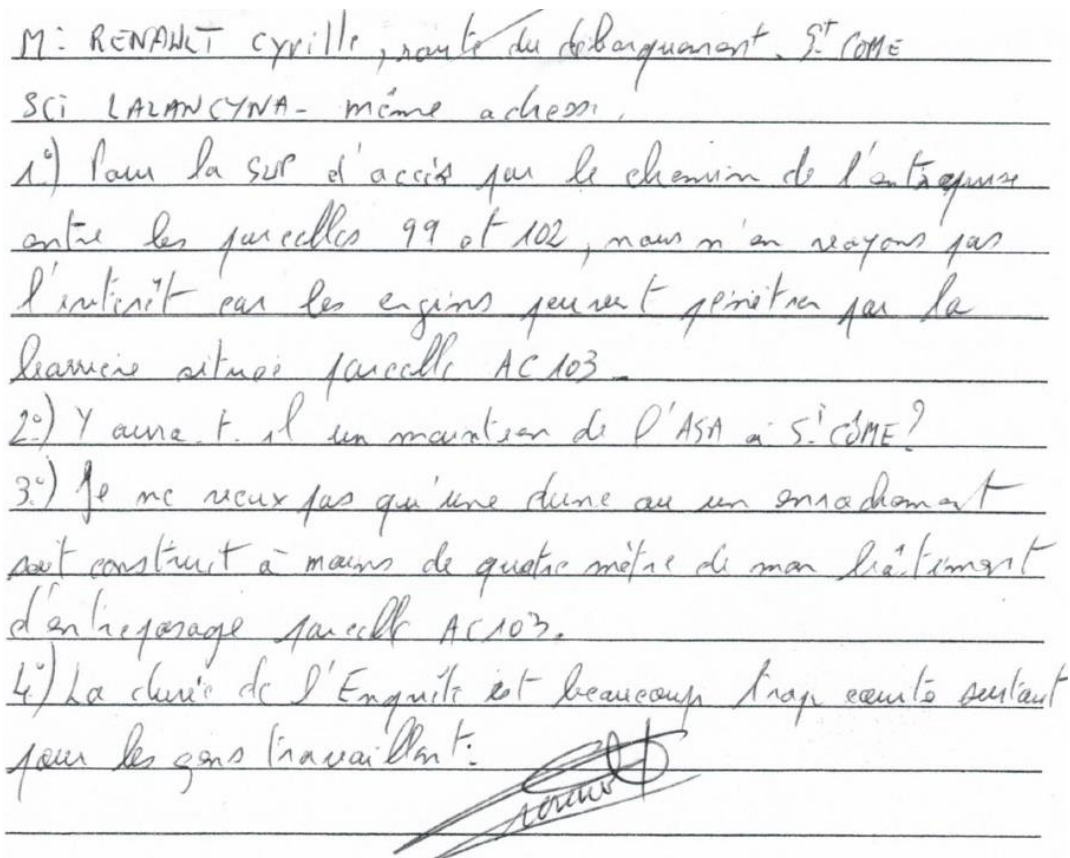 Mr RENAULT Cyrille, route du débarquement. St COME
SCI LALANCYNA - même adresse.
1°) Pour la SUP d'accès par le chemin de l'entreprise
entre les parcelles 99 et 102, nous n'en voyons pas
l'intérêt car les engins peuvent pénétrer par la
barrière située parcelle AC 103.
2°) Y aura-t-il un maintien de l'ASA à St CÔME?
3°) Je ne veux pas qu'une dune ou un enrochement
soit construit à moins de quatre mètre de mon bâtiment
d'entreposage parcelle AC103.
4°) La durée de l'Enquête est beaucoup trop courte surtout
pour les gens travaillant.